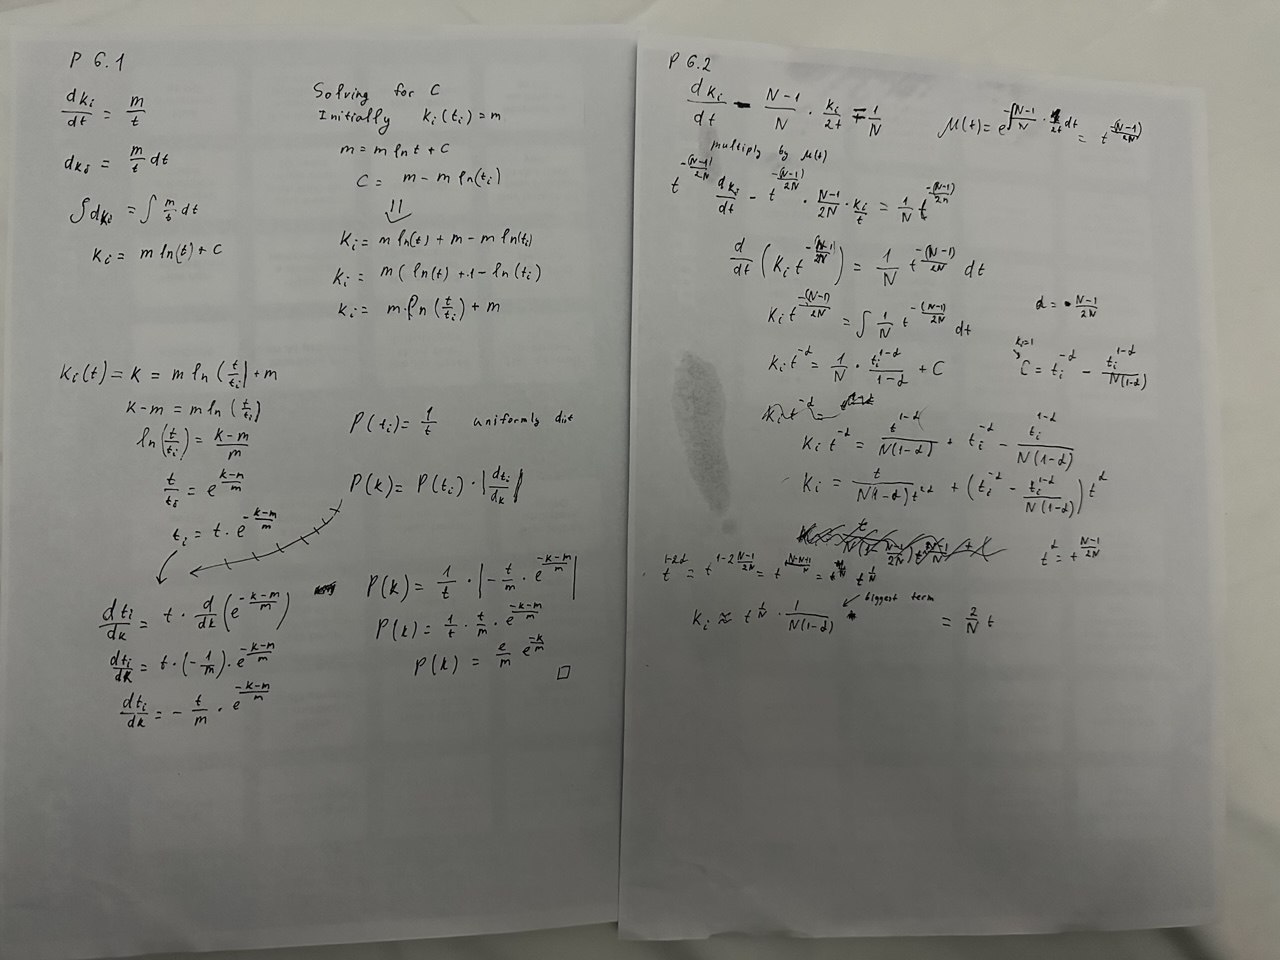 P 6.1
dkᵢ/dt = m/t
dkᵢ = m/t dt
∫dkᵢ = ∫ m/t dt
kᵢ = m ln(t) + C
Solving for C
Initially kᵢ(tᵢ) = m
m = m ln t + C
C = m - m ln(tᵢ)
⇓
kᵢ = m ln(t) + m - m ln(tᵢ)
kᵢ = m(ln(t) + 1 - ln(tᵢ)
kᵢ = m·ln(t/tᵢ) + m
kᵢ(t) = k = m ln(t/tᵢ) + m
k-m = m ln(t/tᵢ)
ln(t/tᵢ) = (k-m)/m
t/tᵢ = e^((k-m)/m)
tᵢ = t · e^(-(k-m)/m)
dtᵢ/dk = t · d/dk(e^(-(k-m)/m))
dtᵢ/dk = t·(-1/m)·e^(-(k-m)/m)
dtᵢ/dk = - t/m · e^(-(k-m)/m)
P(tᵢ) = 1/t uniformly dist
P(k) = P(tᵢ) · |dtᵢ/dk|
P(k) = 1/t · |-t/m · e^(-(k-m)/m)|
P(k) = 1/t · t/m · e^(-(k-m)/m)
P(k) = e/m e^(-k/m)
□
P 6.2
dkᵢ/dt - (N-1)/N · kᵢ/2t = 1/N
μ(t) = e^(-∫(N-1)/N · 1/2t dt) = t^(-(N-1)/2N)
multiply by μ(t)
t^(-(N-1)/2N) dkᵢ/dt - t^(-(N-1)/2N) · (N-1)/2N · kᵢ/t = 1/N t^(-(N-1)/2n)
d/dt (kᵢ t^(-(N-1)/2N)) = 1/N t^(-(N-1)/2N) dt
kᵢ t^(-(N-1)/2N) = ∫ 1/N t^(-(N-1)/2N) dt
d = (N-1)/2N
kᵢ t^(-d) = 1/N · tᵢ^(1-d)/(1-d) + C
kᵢ=1
C = tᵢ^(-d) - tᵢ^(1-d)/(N(1-d))
kᵢ t^(-d) = t^(1-d)/(N(1-d)) + tᵢ^(-d) - tᵢ^(1-d)/(N(1-d))
kᵢ = t/(N(1-d)t^(2d)) + (tᵢ^(-d) - tᵢ^(1-d)/(N(1-d))) t^d
t^d = t^((N-1)/2N)
t^(1-2d) = t^(1-2(N-1)/2N) = t^((N-N+1)/N) = t^(1/N) t^(1/N)
biggest term
kᵢ ≈ t^(1/N) · 1/(N(1-d)) = 2/N t